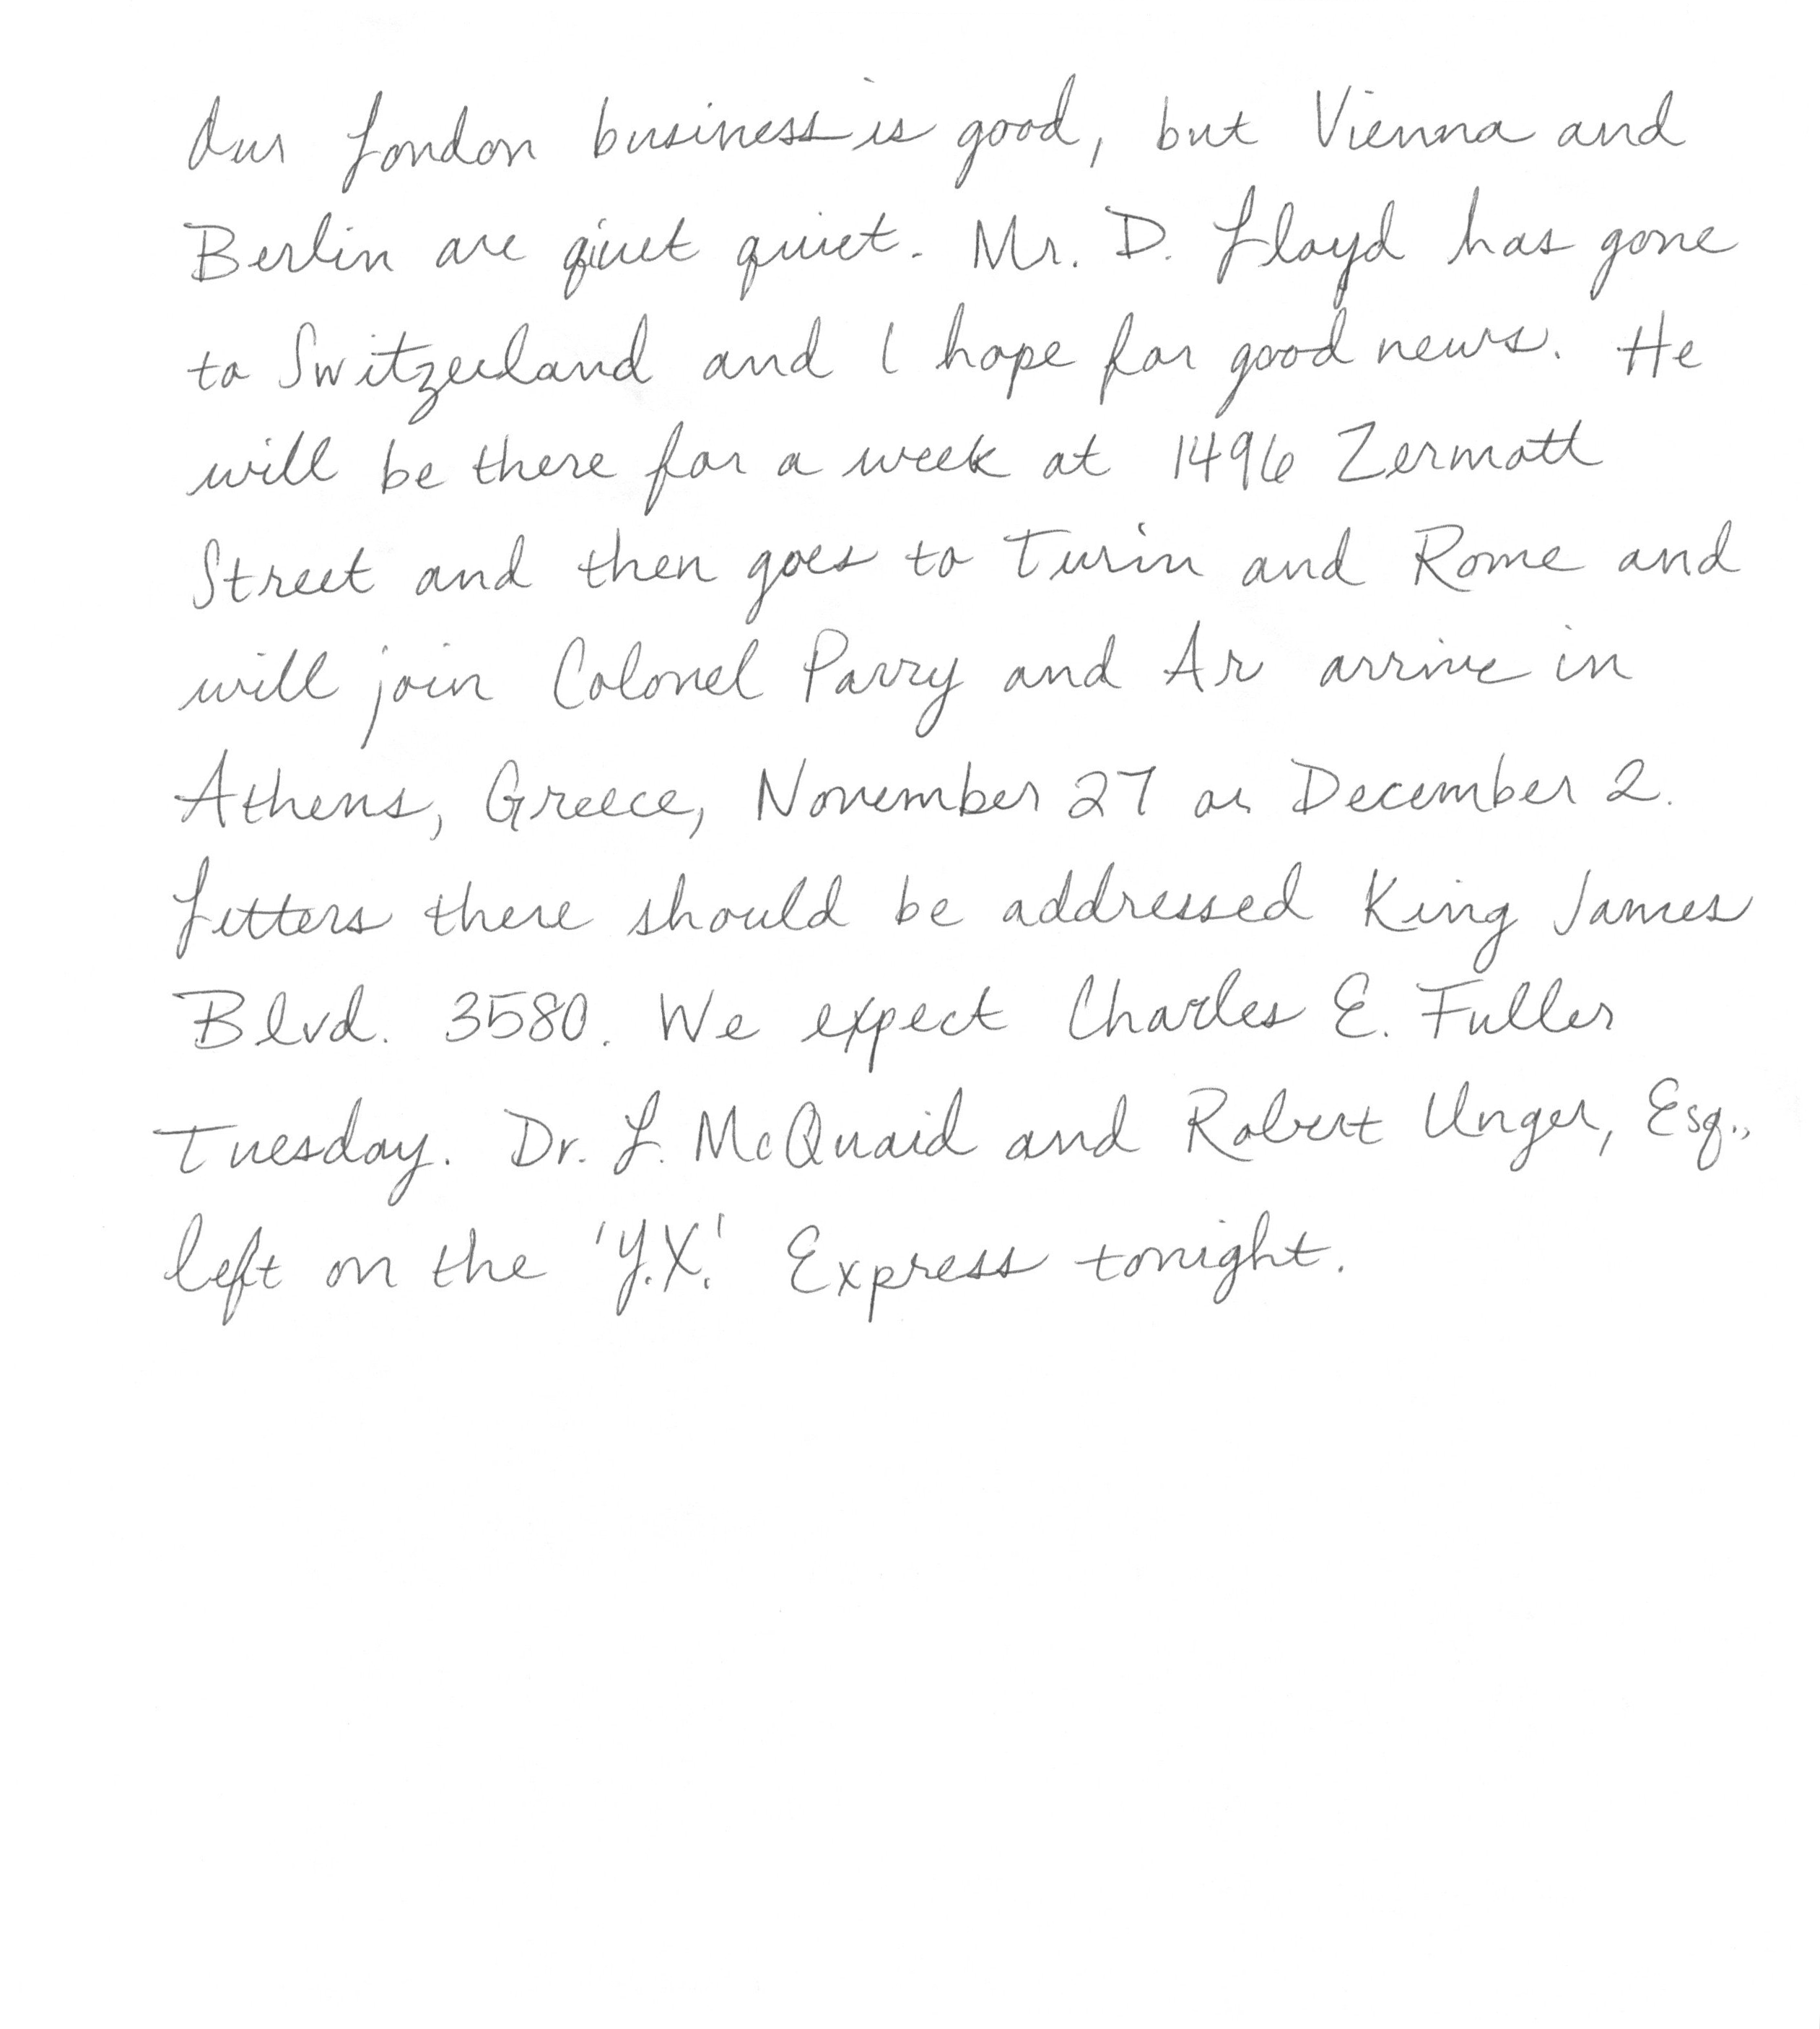 Our London business is good, but Vienna and
Berlin are qiuet quiet. Mr. D. Lloyd has gone
to Switzerland and I hope for good news. He
will be there for a week at 1496 Zermott
Street and then goes to Turin and Rome and
will join Colonel Parry and Ar arrive in
Athens, Greece, November 27 or December 2.
Letters there should be addressed King James
Blvd. 3580. We expect Charles E. Fuller
Tuesday. Dr. L. McQuaid and Robert Unger, Esq.,
left on the 'Y.X.' Express tonight.